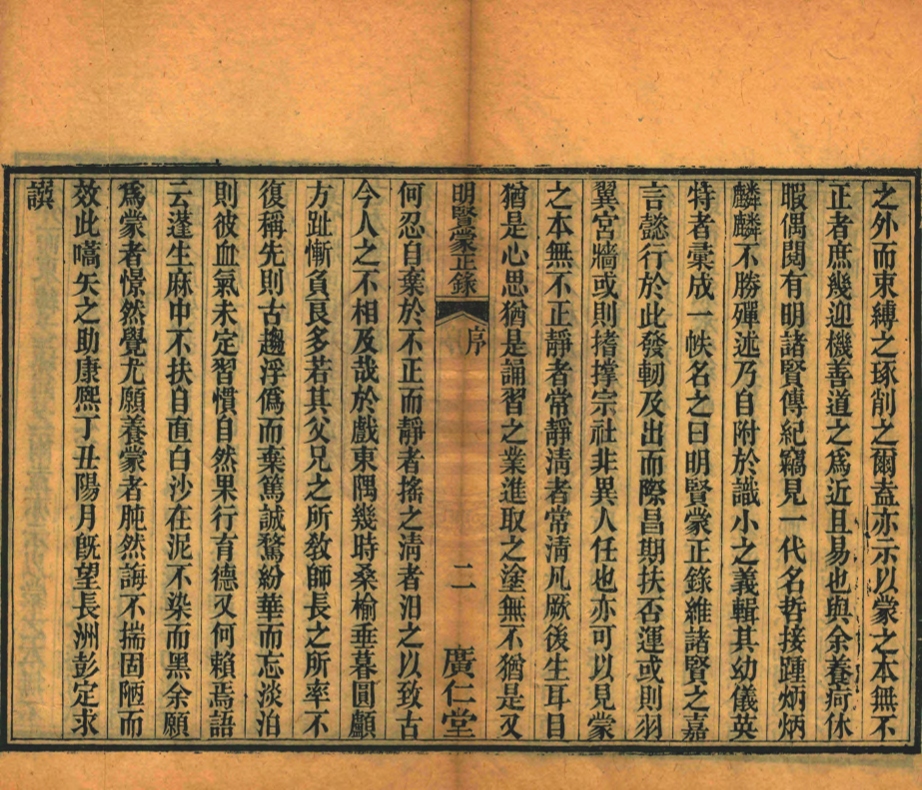 之外而束縛之琢削之爾盖亦示以蒙之本無不
正者庶幾迎機善道之爲近且易也與余養疴休
暇偶閱有明諸賢傳紀竊見一代名哲接踵炳炳
麟麟不勝殫述乃自附於識小之義輯其幼儀英
特者彙成一帙名之曰明賢蒙正錄維諸賢之嘉
言懿行於此發軔及出而際昌期扶否運或則羽
翼宮牆或則搘撑宗社非異人任也亦可以見蒙
之本無不正靜者常靜淸者常淸凡厥後生耳目
猶是心思猶是誦習之業進取之塗無不猶是又
明賢蒙正錄 序 二 廣仁堂
何忍自棄於不正而靜者搖之淸者汨之以致古
今人之不相及哉於戲東隅幾時桑榆垂暮圓顱
方趾慚負良多若其父兄之所敎師長之所率不
復稱先則古趨浮僞而棄篤誠騖紛華而忘淡泊
則彼血氣未定習慣自然果行育德又何賴焉語
云蓬生麻中不扶自直白沙在泥不染而黑余願
爲蒙者憬然覺尤願養蒙者肫然誨不揣固陋而
效此嚆矢之助康熙丁丑陽月旣望長洲彭定求
譔